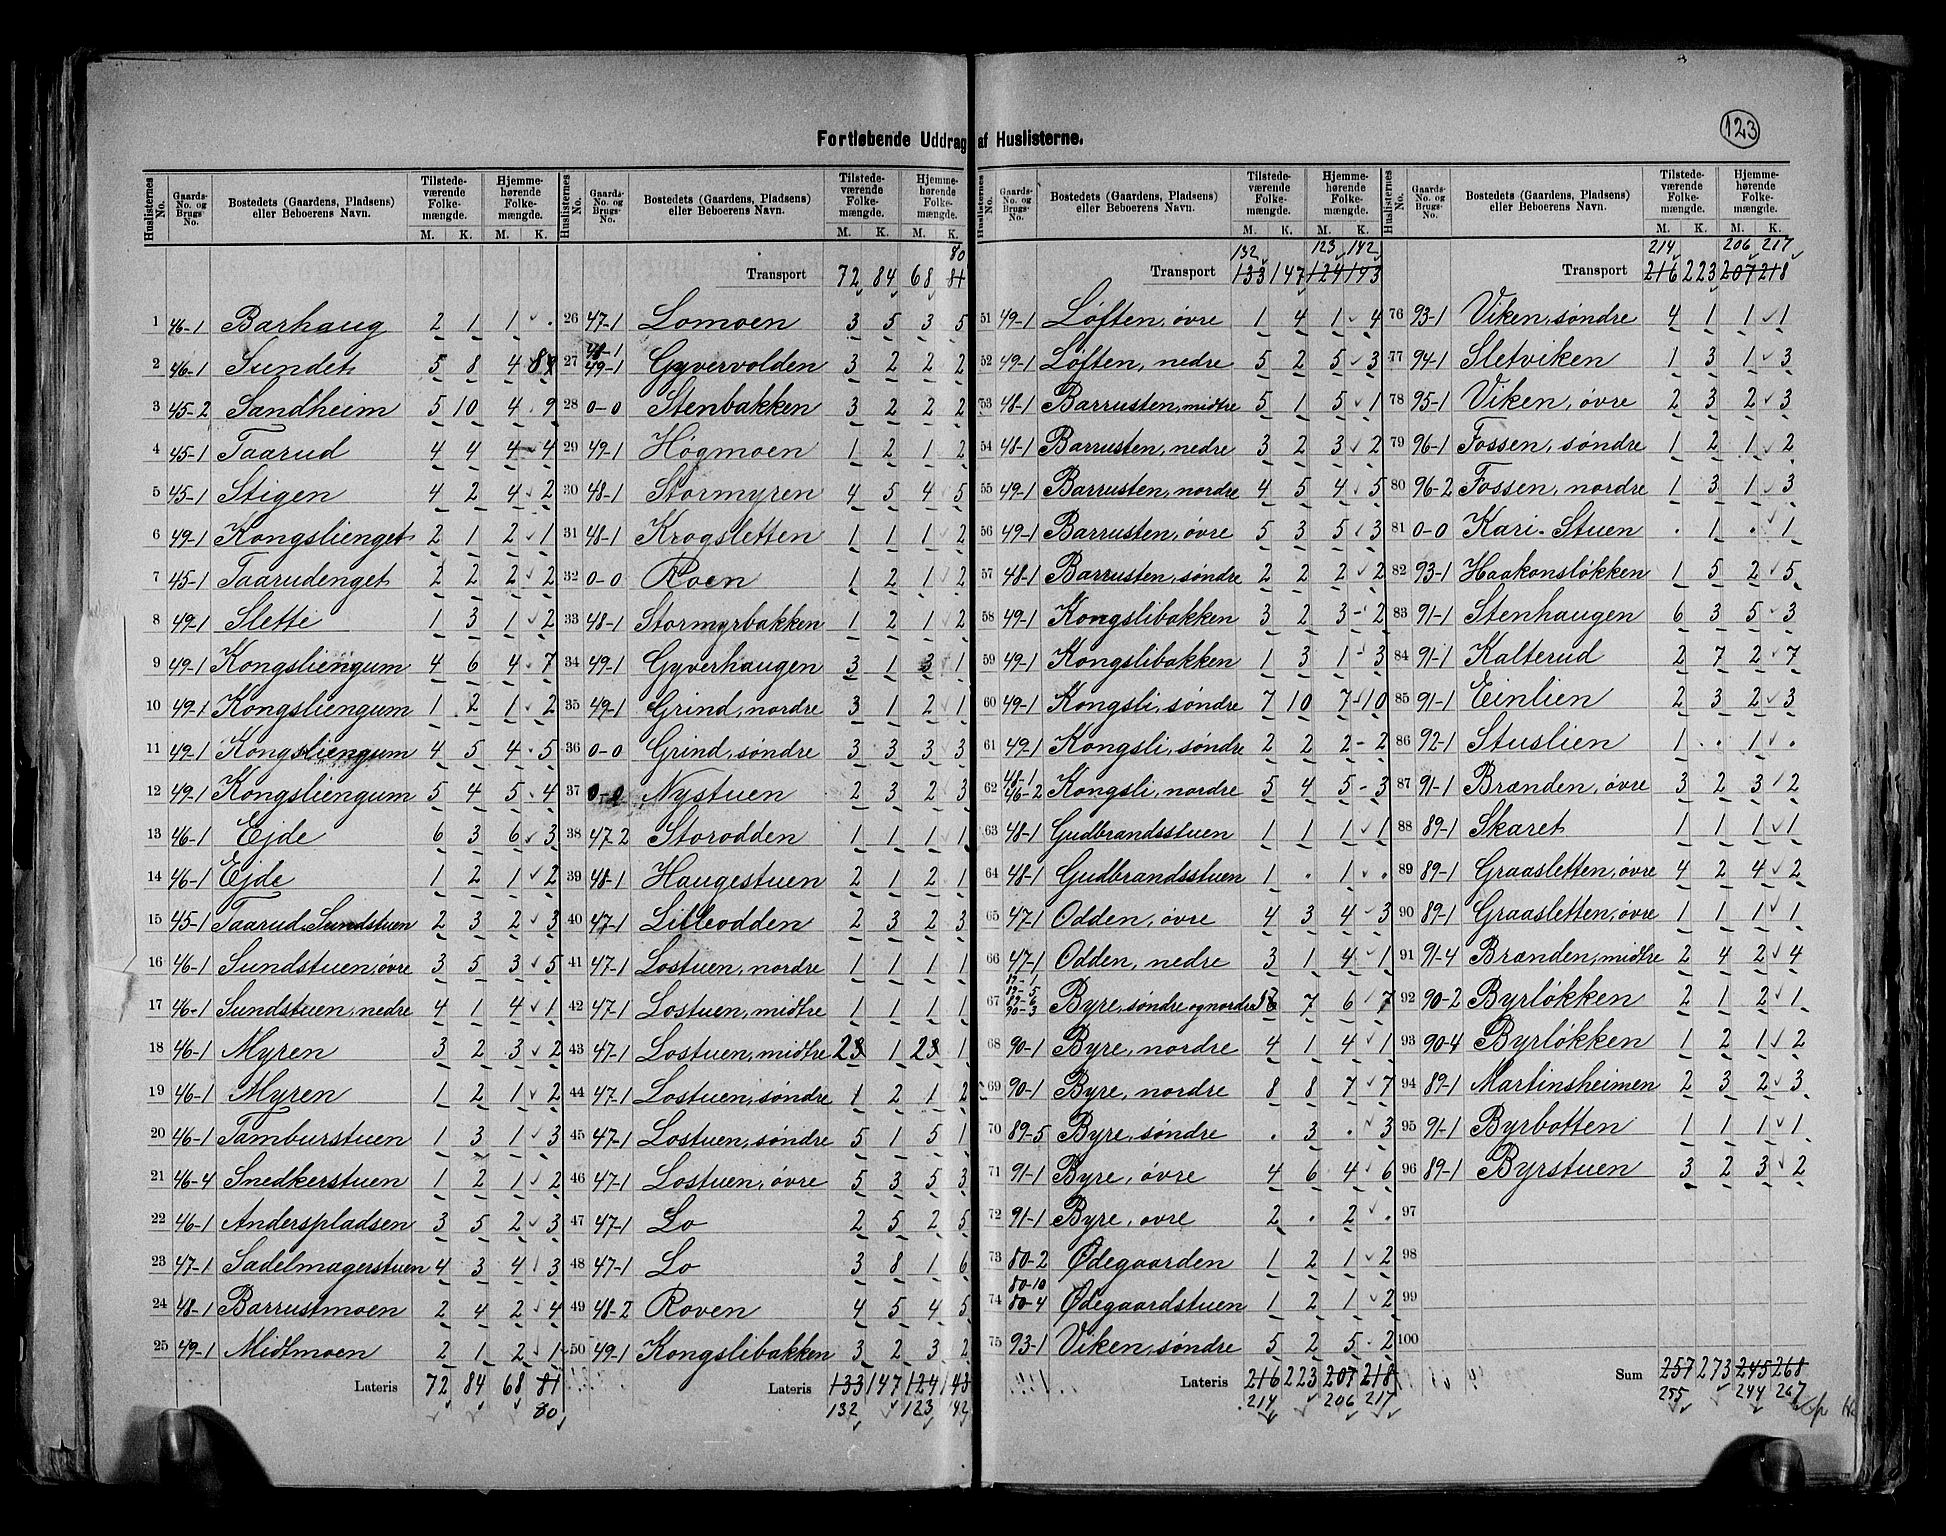 123
Fortløbende Uddrag af Huslisterne.
Huslisternes No. | Gaards-No. og Brugs-No. | Bostedets (Gaardens, Pladsens) eller Beboerens Navn. | Tilstedeværende Folkemængde. M. K. | Hjemmehørende Folkemængde. M. K.
1 46-1 Barhaug 2 1 1 .
2 46-1 Sundet 5 8 4 8
3 45-2 Sandheim 5 10 4 9
4 45-1 Taarud 4 4 4 4
5 45-1 Stigen 4 2 4 2
6 49-1 Kongslienget 2 1 2 1
7 45-1 Taarudenget 2 2 2 2
8 49-1 Slette 1 3 1 2
9 49-1 Kongsliengum 4 6 4 7
10 49-1 Kongsliengum 1 2 1 2
11 49-1 Kongsliengum 4 5 4 5
12 49-1 Kongsliengum 5 4 5 4
13 46-1 Ejde 6 3 6 3
14 46-1 Ejde 1 2 1 2
15 45-1 Taarud Sundstuen 2 3 2 3
16 46-1 Sundstuen, øvre 3 5 3 5
17 46-1 Sundstuen, nedre 4 1 4 1
18 46-1 Myren 3 2 3 2
19 46-1 Myren 1 2 1 2
20 46-1 Tamburstuen 1 3 1 3
21 46-4 Snedkerstuen 1 2 1 2
22 46-1 Anderspladsen 3 5 2 3
23 47-1 Sadelmagerstuen 4 3 4 3
24 48-1 Barrustmoen 2 4 2 4
25 49-1 Midtmoen 2 1 2 1
Lateris 72 84 68 81
80
80
Transport 72 84 68 81
26 47-1 Lomoen 3 5 3 5
27 48-1 49-1 Gyvervolden 3 2 2 2
28 0-0 Stenbakken 3 2 2 2
29 49-1 Høgmoen 1 2 1 2
30 48-1 Stormyren 4 5 4 5
31 48-1 Krogsletten 1 1 1 2
32 0-0 Roen 1 2 1 2
33 48-1 Stormyrbakken 1 2 1 2
34 49-1 Gyverhaugen 3 1 3 1
35 49-1 Grind, nordre 3 1 2 1
36 0-0 Grind, søndre 3 3 3 3
37 0-0 Nystuen 2 3 2 3
38 47-2 Storodden 1 1 1 1
39 48-1 Haugestuen 2 1 2 1
40 47-1 Lilleodden 2 3 2 3
41 47-1 Lostuen, nordre 1 1 1 1
42 47-1 Lostuen, midtre 1 1 1 1
43 47-1 Lostuen, midtre 23 1 23 1
44 47-1 Lostuen, søndre 1 2 1 2
45 47-1 Lostuen, søndre 5 1 5 1
46 47-1 Lostuen, øvre 5 3 5 3
47 47-1 Lo 2 5 2 5
48 47-1 Lo 3 8 1 6
49 48-2 Roven 4 5 4 5
50 49-1 Kongslibakken 3 2 3 2
Lateris 133 147 124 143
132 123 142
132 123 142
Transport 133 147 124 143
51 49-1 Løften, øvre 1 4 1 4
52 49-1 Løften, nedre 5 2 5 3
53 48-1 Barrusten, midtre 5 1 5 1
54 48-1 Barrusten, nedre 3 2 3 2
55 49-1 Barrusten, nordre 4 5 4 5
56 49-1 Barrusten, øvre 5 3 5 3
57 48-1 Barrusten, søndre 2 2 2 2
58 49-1 Kongslibakken 3 2 3 2
59 49-1 Kongslibakken 1 3 1 3
60 49-1 Kongsli, søndre 7 10 7 10
61 49-1 Kongsli, søndre 2 2 2 2
62 48-1 46-2 Kongsli, nordre 5 4 5 3
63 48-1 Gudbrandsstuen 1 1 1 1
64 48-1 Gudbrandsstuen 1 . 1 .
65 47-1 Odden, øvre 4 3 4 3
66 47-1 Odden, nedre 3 1 4 1
67 90-3 Byre, søndre og nordre 7 6 7
68 90-1 Byre, nordre 4 1 4 1
69 90-1 Byre, nordre 8 8 7 7
70 89-5 Byre, søndre . 3 . 3
71 91-1 Byre, øvre 4 6 4 6
72 91-1 Byre, øvre 2 . 2 .
73 80-2 Ødegaarden 1 2 1 2
74 80-10 80-4 Ødegaardstuen 1 2 1 2
75 93-1 Viken, søndre 5 2 5 2
Lateris 216 223 207 218
214 206 217
214 206 217
Transport 216 223 207 218
76 93-1 Viken, søndre 4 1 1 1
77 94-1 Sletviken 1 3 1 3
78 95-1 Viken, øvre 2 3 2 3
79 96-1 Fossen, søndre 1 2 1 2
80 96-2 Fossen, nordre 1 3 1 3
81 0-0 Kari-Stuen . 1 . 1
82 93-1 Haakonsløkken 1 5 2 5
83 91-1 Stenhaugen 6 3 5 3
84 91-1 Kalterud 2 7 2 7
85 91-1 Einlien 2 3 2 3
86 92-1 Stuslien 1 . 1 .
87 91-1 Brænden, øvre 3 2 3 2
88 89-1 Skaret 1 1 1 1
89 89-1 Graasletten, øvre 4 2 4 2
90 89-1 Graasletten, øvre 1 1 1 1
91 91-4 Brænden, midtre 2 4 2 4
92 90-2 Byrløkken 2 1 2 1
93 90-4 Byrløkken 1 2 1 2
94 89-1 Martinsheimen 2 3 2 3
95 91-1 Byrbotten 1 1 1 1
96 89-1 Byrstuen 3 2 3 2
97
98
99
100
Sum 257 273 245 268
255 244 267